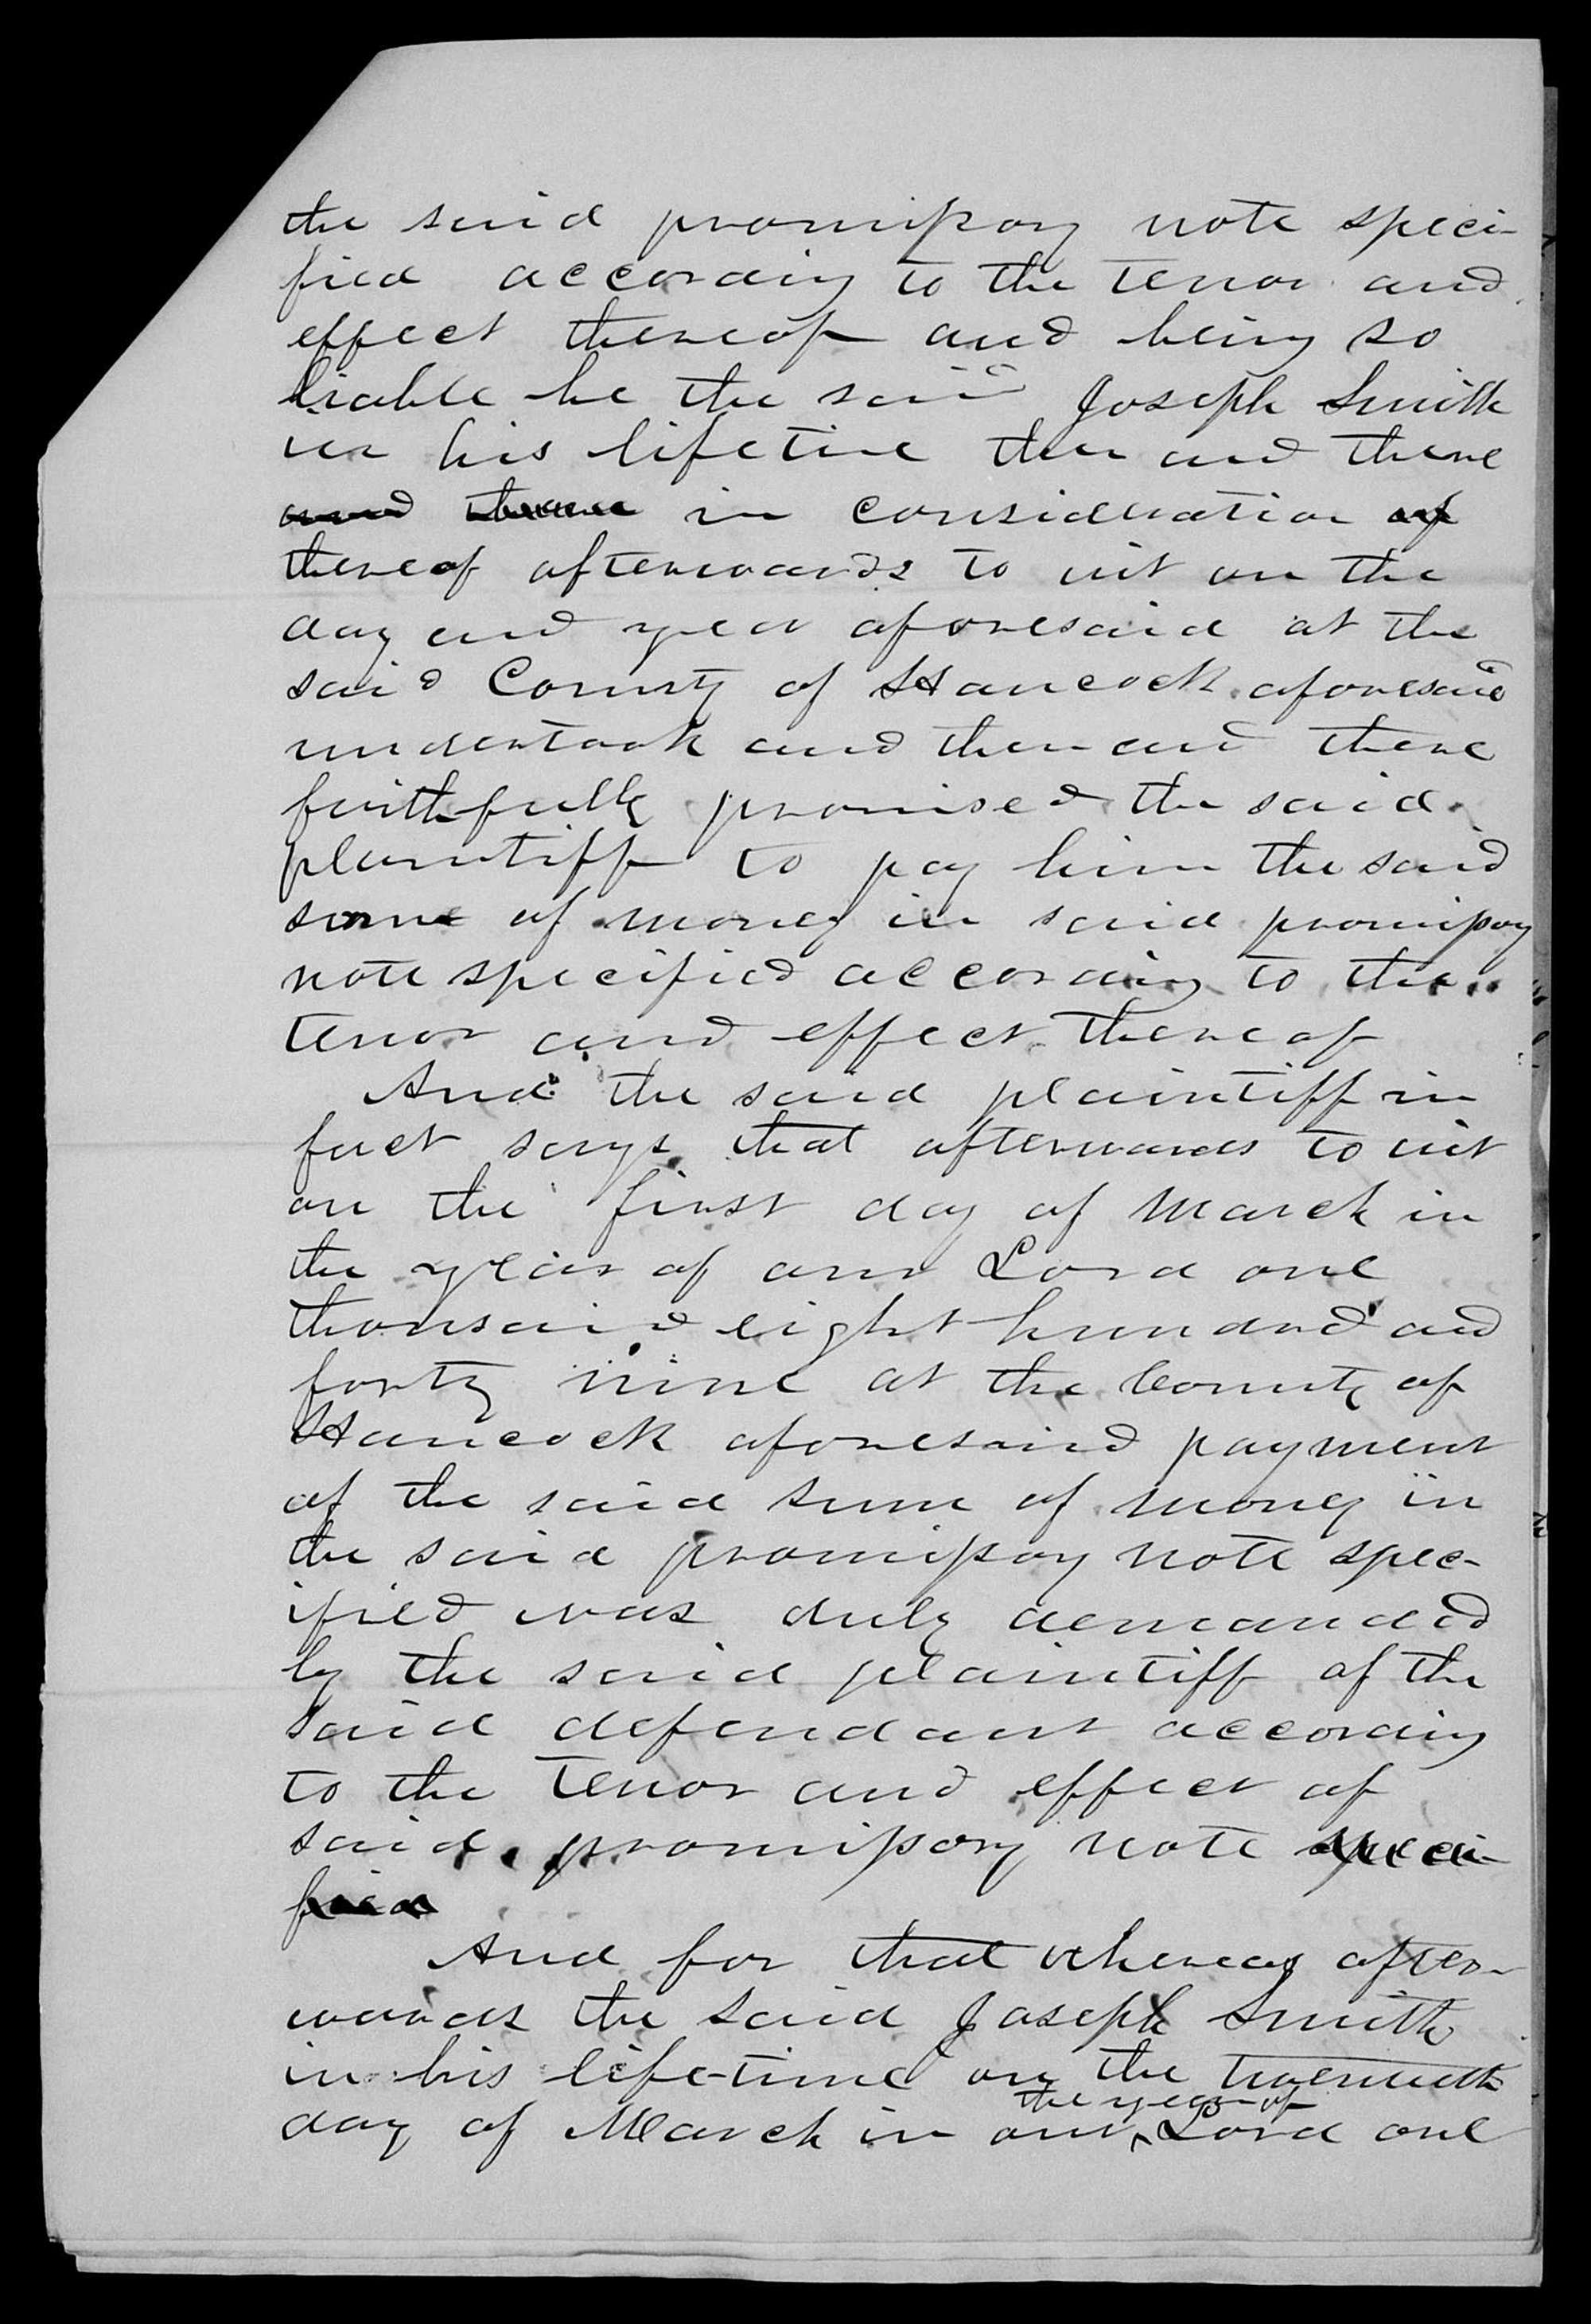 the said promissory note speci-
fied according to the tenor and
effect thereof and being so
liable he the said Joseph Smith
in his lifetime then and there
and there in consideration of
thereof afterwards to wit on the
day and year aforesaid at the
said County of Hancock aforesaid
undertook and then and there
faithfully promised the said
plaintiff to pay him the said
sum of money in said promissory
note specified according to the
tenor and effect thereof
And the said plaintiff in
fact says that afterwards to wit
on the first day of March in
the year of our Lord one
thousand eight hundred and
forty nine at the County of
Hancock aforesaid payment
of the said sum of money in
the said promissory note spec-
ified was duly demanded
by the said plaintiff of the
said defendant according
to the tenor and effect of
said promissory note speci-
fied
And for that whereas after-
wards the said Joseph Smith
in his life-time on the twentieth
the year of
day of March in our ‸ Lord one